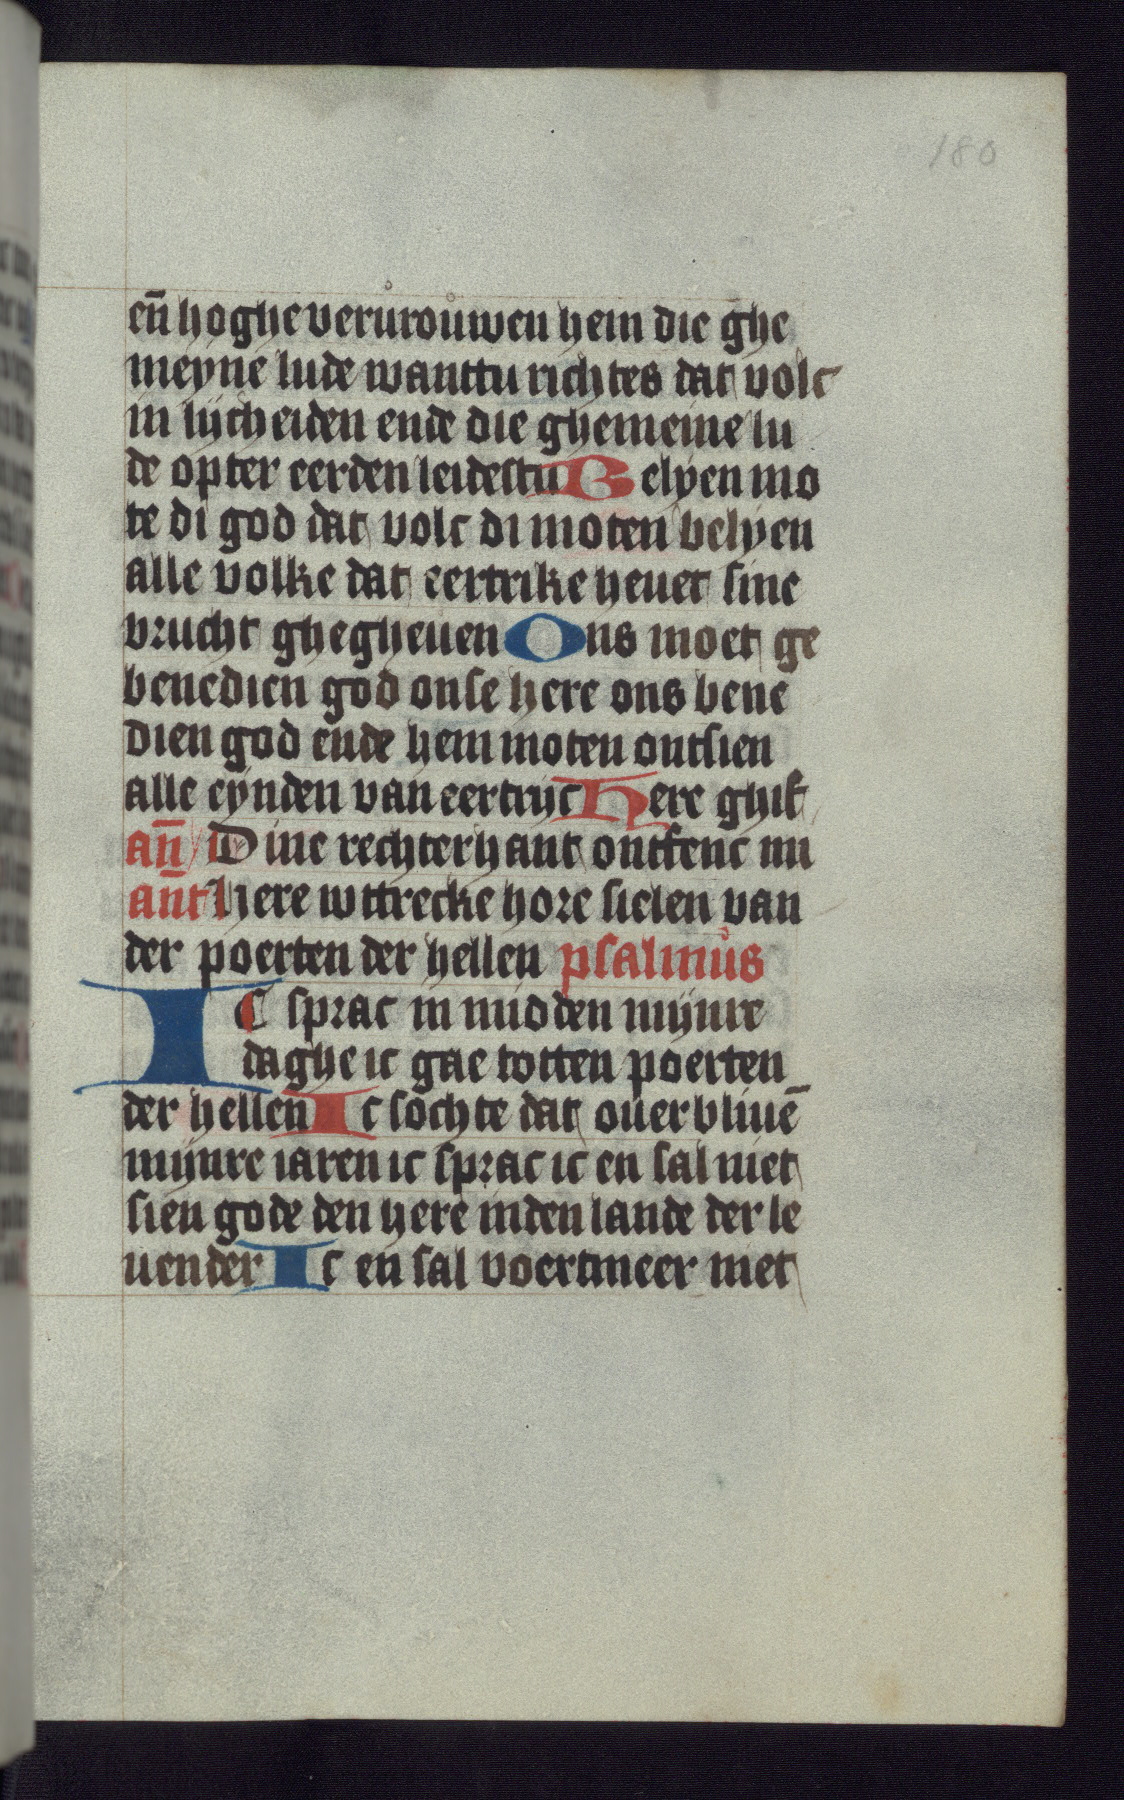 180
en̄ hoghe veruroůwen hem die ghe
meyne lude wanttu richtes dat volc
in lijcheiden ende die ghemeine lu
de opter eerden leidestu Belyen mo
te di god dat volc di moten belyen
alle volke dat eertrike heuet sine
vrucht ghegheuen Ons moet ge
benedien god onse here ons bene
dien god ende hem moten ontsien
alle eynden van eertrijc Here ghif
an̄ Dine rechterhant ontfenc mi
an̄t here wttrecke hore sielen van
der poerten der hellen psalmůs
IC sprac in midden mijnre
daghe ic gae totten poerten
der hellen Ic sochte dat ouerbliuē
mijnre iaren ic sprac ic en sal niet
sien gode den here inden lande der le
uender Ic en sal voertmeer niet